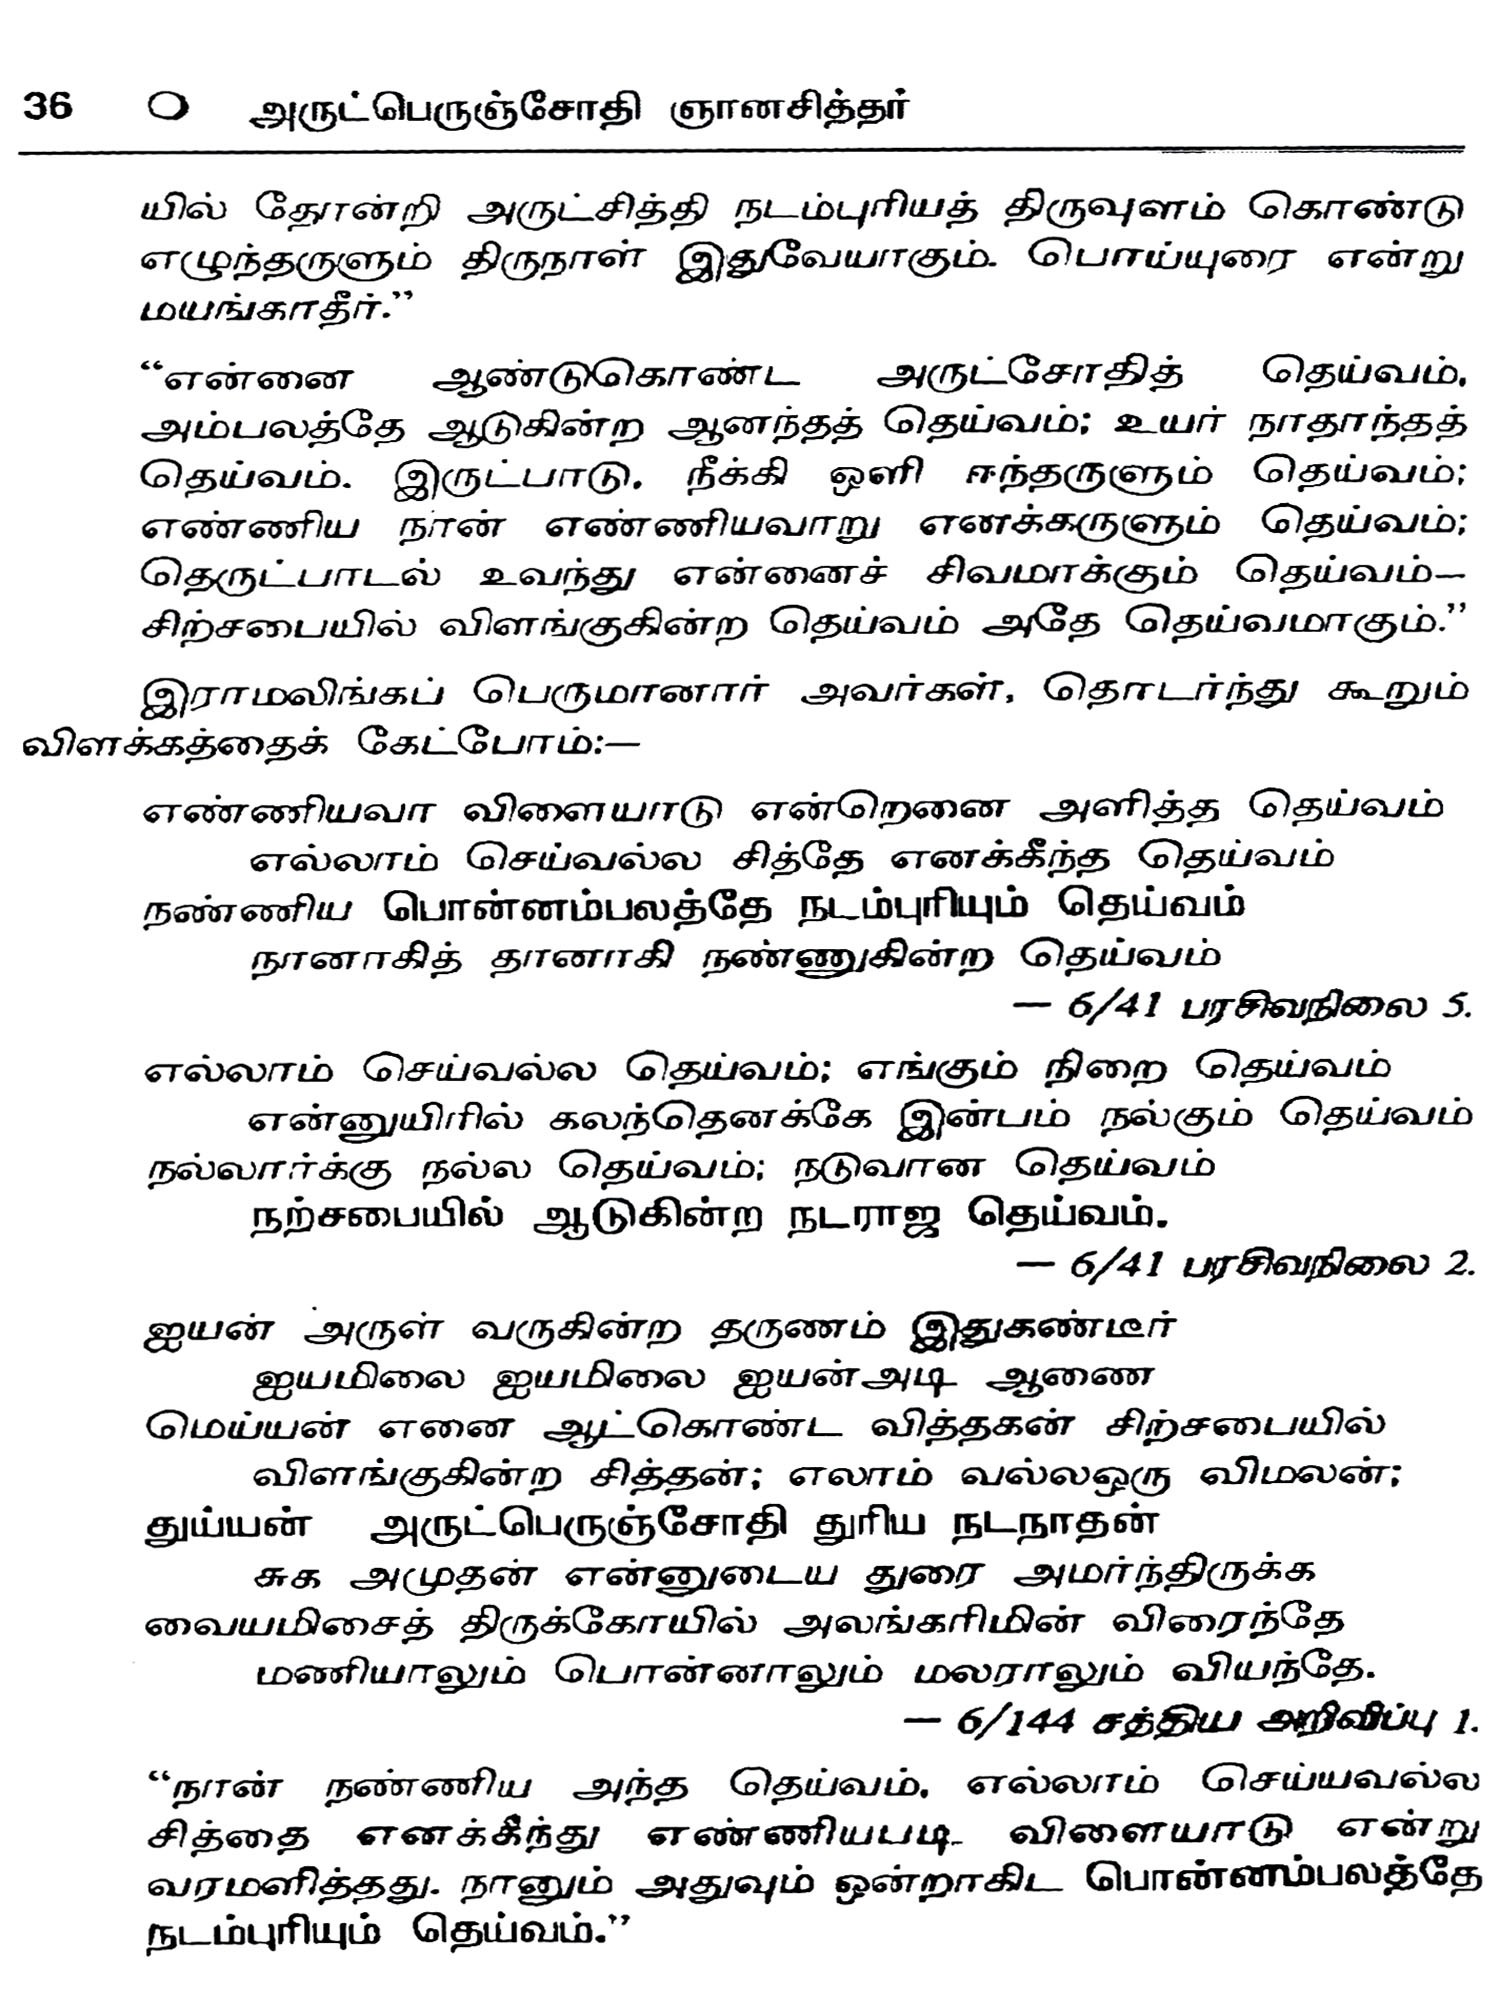 36 O அருட்பெருஞ்சோதி ஞானசித்தர்
யில் தோன்றி அருட்சித்தி நடம்புரியத் திருவுளம் கொண்டு
எழுந்தருளும் திருநாள் இதுவேயாகும். பொய்யுரை என்று
மயங்காதீர்.”
“என்னை ஆண்டுகொண்ட அருட்சோதித் தெய்வம்,
அம்பலத்தே ஆடுகின்ற ஆனந்தத் தெய்வம்; உயர் நாதாந்தத்
தெய்வம். இருட்பாடு, நீக்கி ஒளி ஈந்தருளும் தெய்வம்;
எண்ணிய நான் எண்ணியவாறு எனக்கருளும் தெய்வம்;
தெருட்பாடல் உவந்து என்னைச் சிவமாக்கும் தெய்வம்—
சிற்சபையில் விளங்குகின்ற தெய்வம் அதே தெய்வமாகும்.”
இராமலிங்கப் பெருமானார் அவர்கள், தொடர்ந்து கூறும்
விளக்கத்தைக் கேட்போம்:—
எண்ணியவா விளையாடு என்றெனை அளித்த தெய்வம்
எல்லாம் செய்வல்ல சித்தே எனக்கீந்த தெய்வம்
நண்ணிய பொன்னம்பலத்தே நடம்புரியும் தெய்வம்
நானாகித் தானாகி நண்ணுகின்ற தெய்வம்
— 6/41 பரசிவநிலை 5.
எல்லாம் செய்வல்ல தெய்வம்; எங்கும் நிறை தெய்வம்
என்னுயிரில் கலந்தெனக்கே இன்பம் நல்கும் தெய்வம்
நல்லார்க்கு நல்ல தெய்வம்; நடுவான தெய்வம்
நற்சபையில் ஆடுகின்ற நடராஜ தெய்வம்.
— 6/41 பரசிவநிலை 2.
ஐயன் அருள் வருகின்ற தருணம் இதுகண்டீர்
ஐயமிலை ஐயமிலை ஐயன்அடி ஆணை
மெய்யன் எனை ஆட்கொண்ட வித்தகன் சிற்சபையில்
விளங்குகின்ற சித்தன்; எலாம் வல்லஒரு விமலன்;
துய்யன் அருட்பெருஞ்சோதி துரிய நடநாதன்
சுக அமுதன் என்னுடைய துரை அமர்ந்திருக்க
வையமிசைத் திருக்கோயில் அலங்கரிமின் விரைந்தே
மணியாலும் பொன்னாலும் மலராலும் வியந்தே.
— 6/144 சத்திய அறிவிப்பு 1.
“நான் நண்ணிய அந்த தெய்வம், எல்லாம் செய்யவல்ல
சித்தை எனக்கீந்து எண்ணியபடி விளையாடு என்று
வரமளித்தது. நானும் அதுவும் ஒன்றாகிட பொன்னம்பலத்தே
நடம்புரியும் தெய்வம்.”